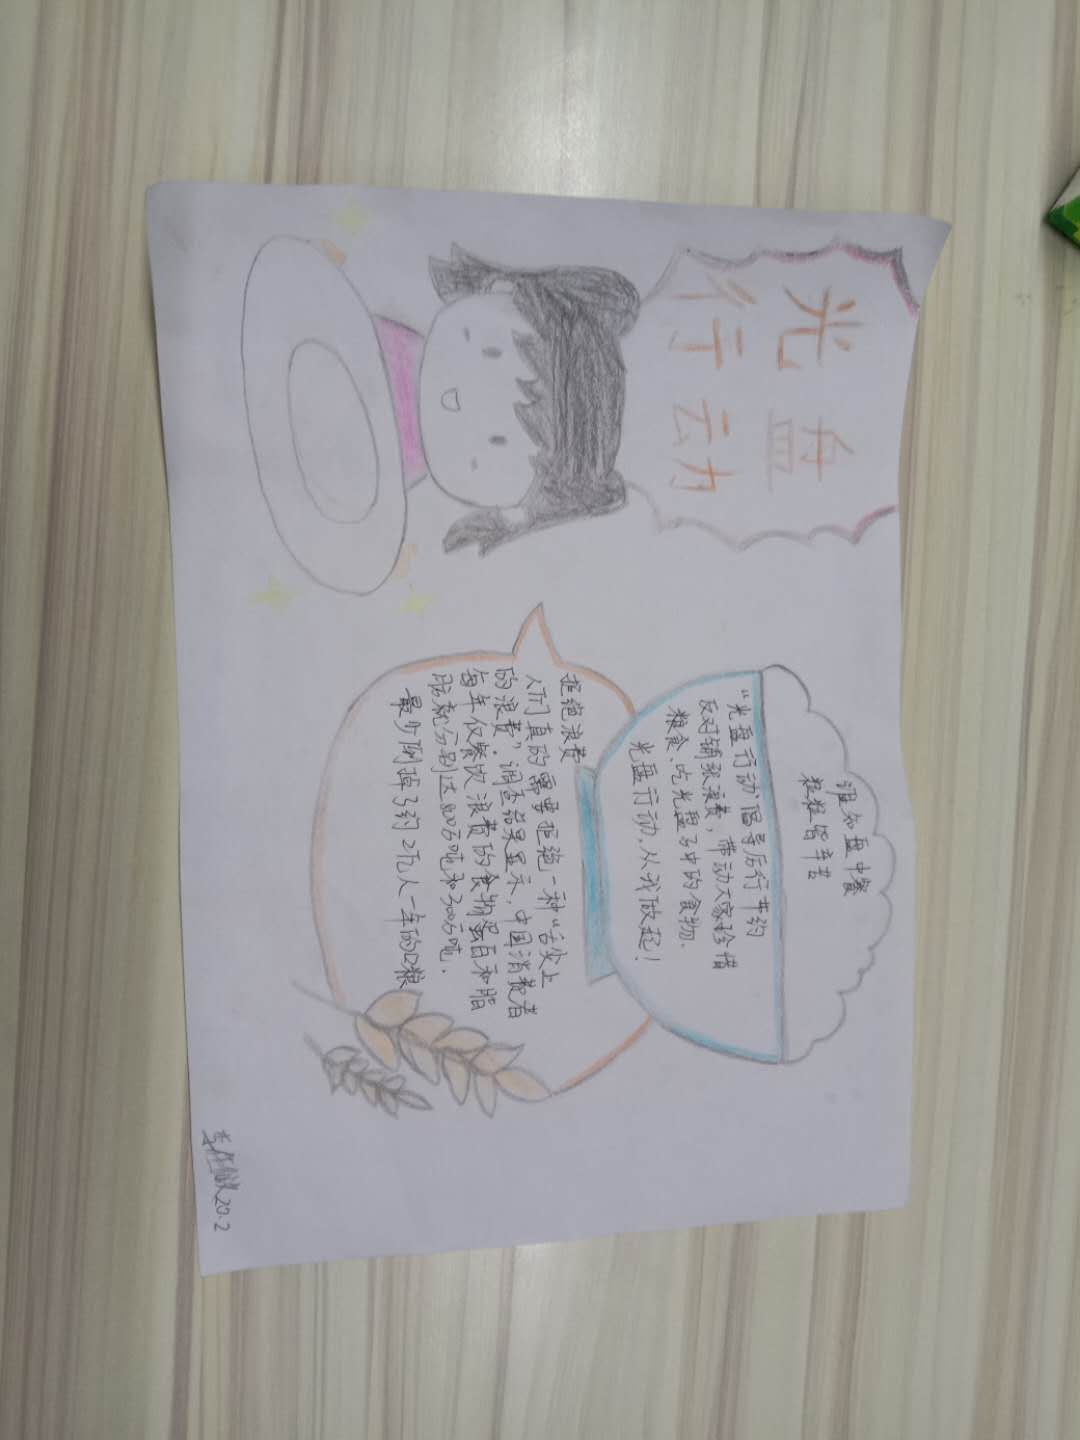 光盘
行动
谁知盘中餐
粒粒皆辛苦
"光盘行动"倡导厉行节约
反对铺张浪费，带动大家珍惜
粮食、吃光盘子中的食物.
光盘行动，从我做起！
拒绝浪费
人们真的需要拒绝一种"舌尖上
的浪费"，调查结果显示，中国消费者
每年仅餐饮浪费的食物蛋白和脂
肪就分别达800万吨和300万吨.
最少倒掉了约2亿人一年的口粮
20.2